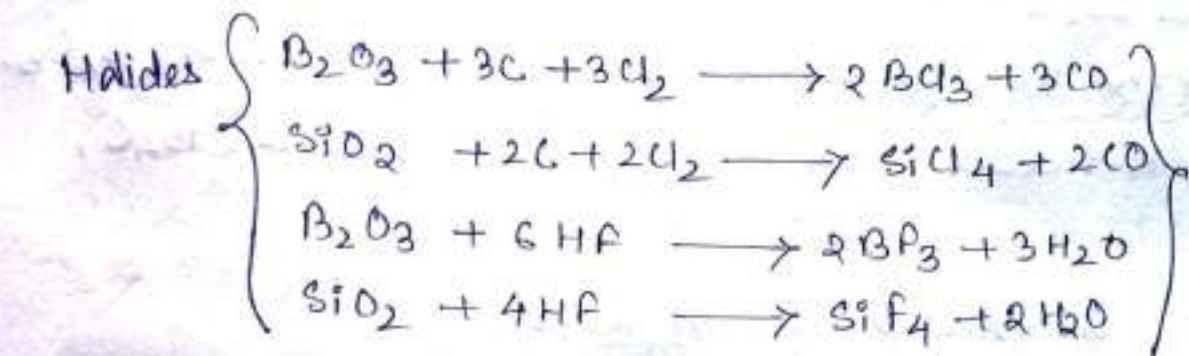 Halides { B₂O₃ + 3C + 3Cl₂ ⟶ 2BCl₃ + 3CO }
SiO₂ + 2C + 2Cl₂ ⟶ SiCl₄ + 2CO
B₂O₃ + 6HF ⟶ 2BF₃ + 3H₂O
SiO₂ + 4HF ⟶ SiF₄ + 2H₂O